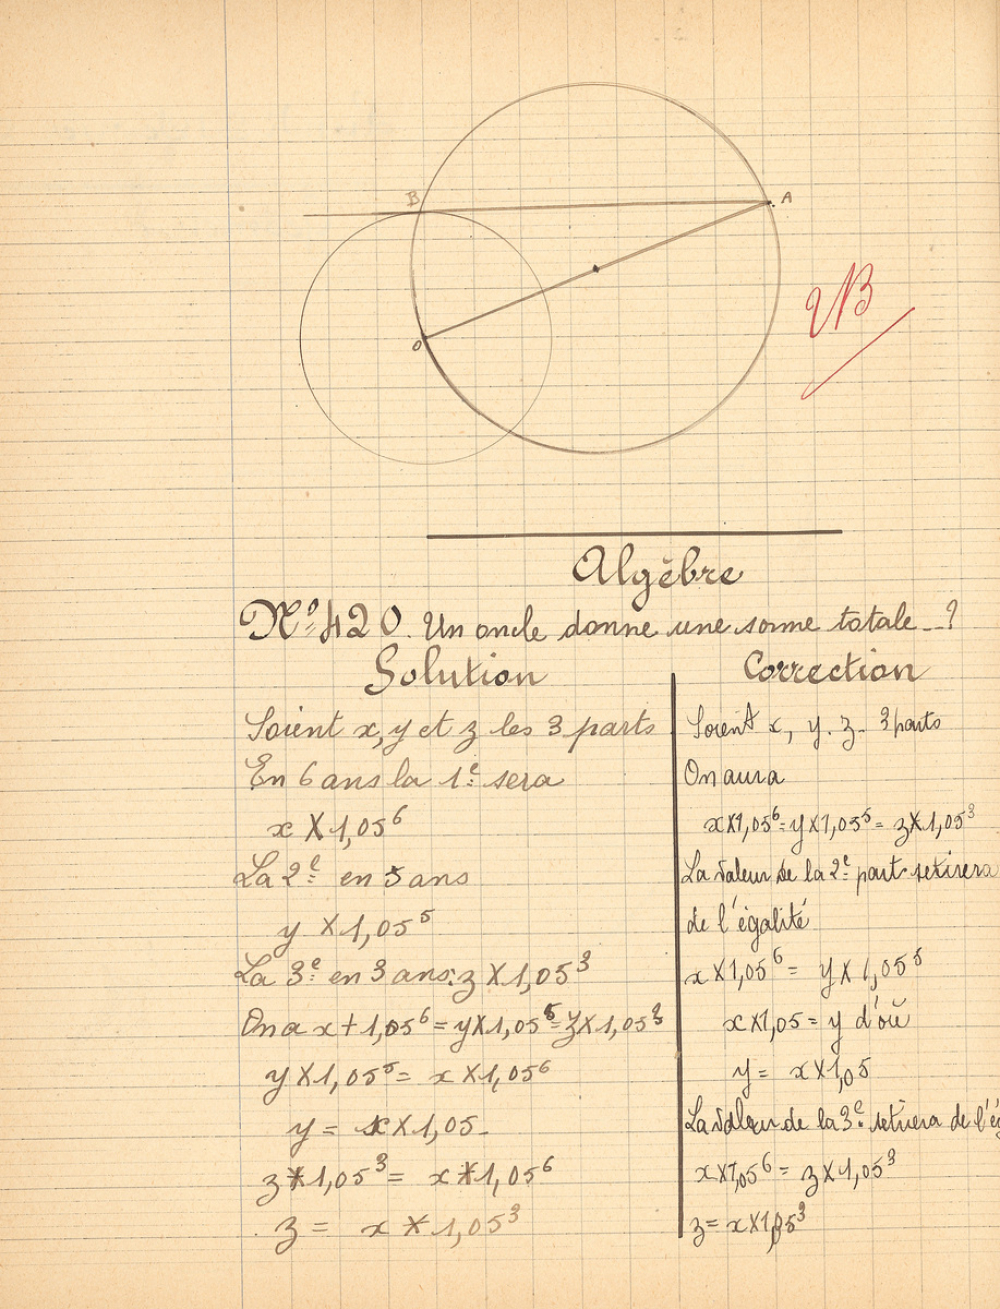 B
A
O
Algèbre
Nº 420. Un oncle donne une somme totale...?
Solution
Soient x, y et z les 3 parts
En 6 ans la 1e sera
x X 1,05⁶
La 2e en 5 ans
y X 1,05⁵
La 3e en 3 ans: z X 1,05³
On a x + 1,05⁶ = y X 1,05⁵ = z X 1,05³
y X 1,05⁵ = x X 1,05⁶
y = x X 1,05
z X 1,05³ = x X 1,05⁶
z = x X 1,05³
Correction
Soient x, y. z. 3 parts
On aura
x X 1,05⁶ = y X 1,05⁵ = z X 1,05³
La valeur de la 2e part se tirera
de l'égalité
x X 1,05⁶ = y X 1,05⁵
x X 1,05 = y d'où
y = x X 1,05
La valeur de la 3e se tirera de l'ég
x X 1,05⁶ = z X 1,05³
z = x X 1,05³